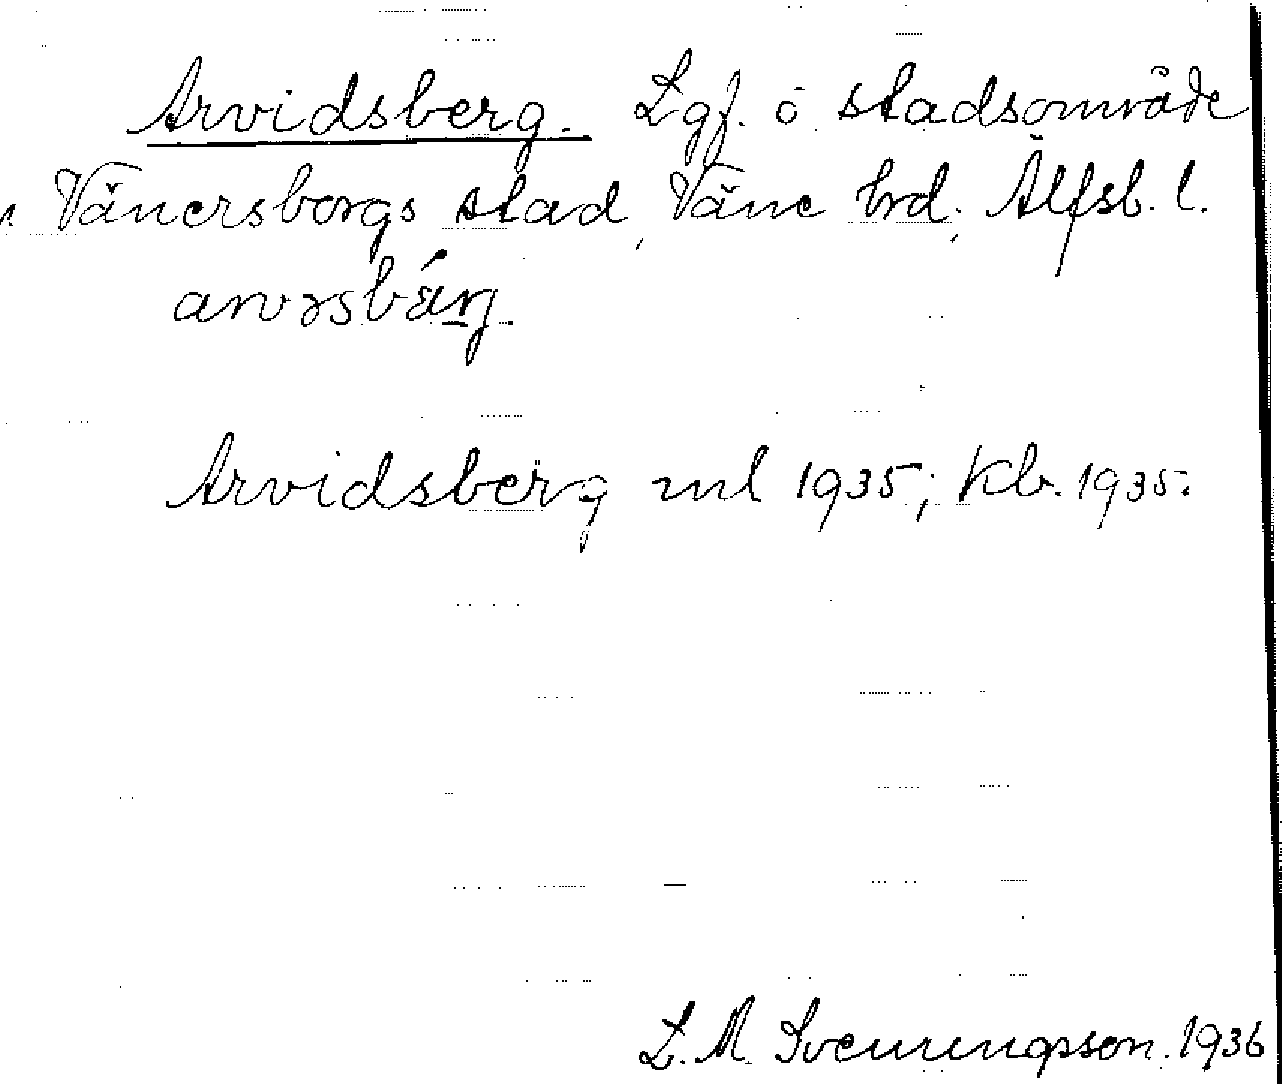 Arvidsberg. Lgf. ö stadsområde
Vänersborgs stad, Väne hrd, Älfsb. l.
Arvidsberg ml 1935; Kb. 1935.
L. M. Svenungsson. 1936